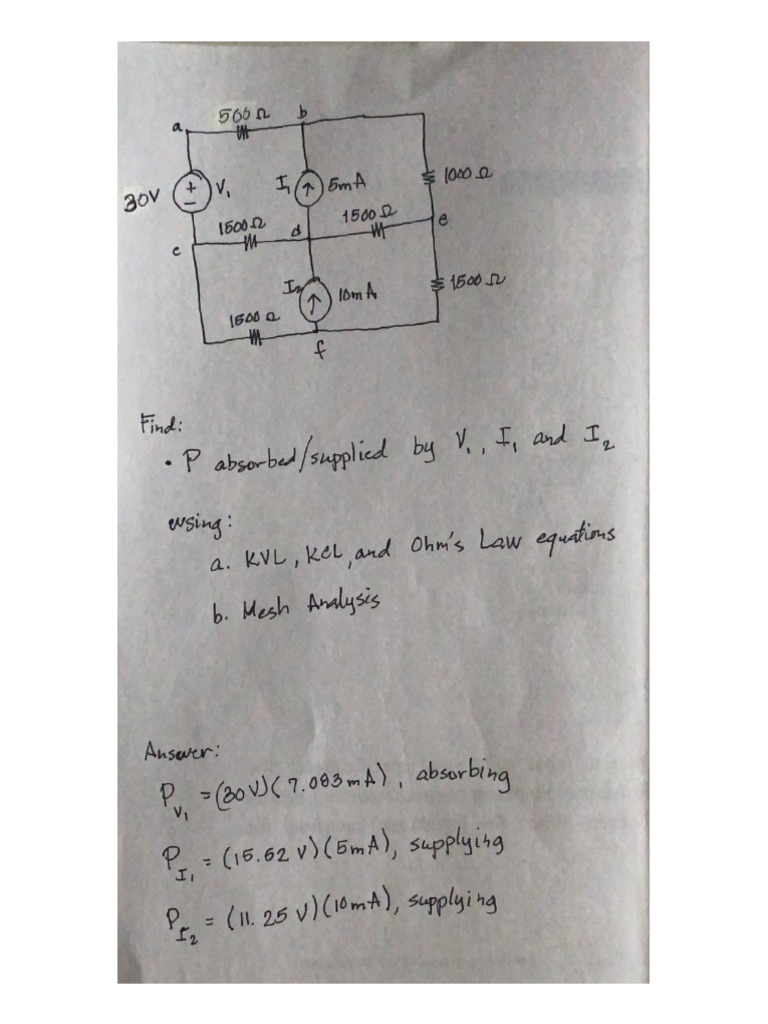 500 Ω
a b
30V + − V₁ I₁ ↑ 5mA 1000 Ω
1500 Ω d 1500 Ω e
c
I₂ ↑ 10mA 1500 Ω
1500 Ω
f
Find:
• P absorbed/supplied by V₁, I₁ and I₂
using:
a. KVL, KCL, and Ohm's Law equations
b. Mesh Analysis
Answer:
P_V₁ = (30V)(7.083mA), absorbing
P_I₁ = (15.62 V)(5mA), supplying
P_I₂ = (11.25 V)(10mA), supplying